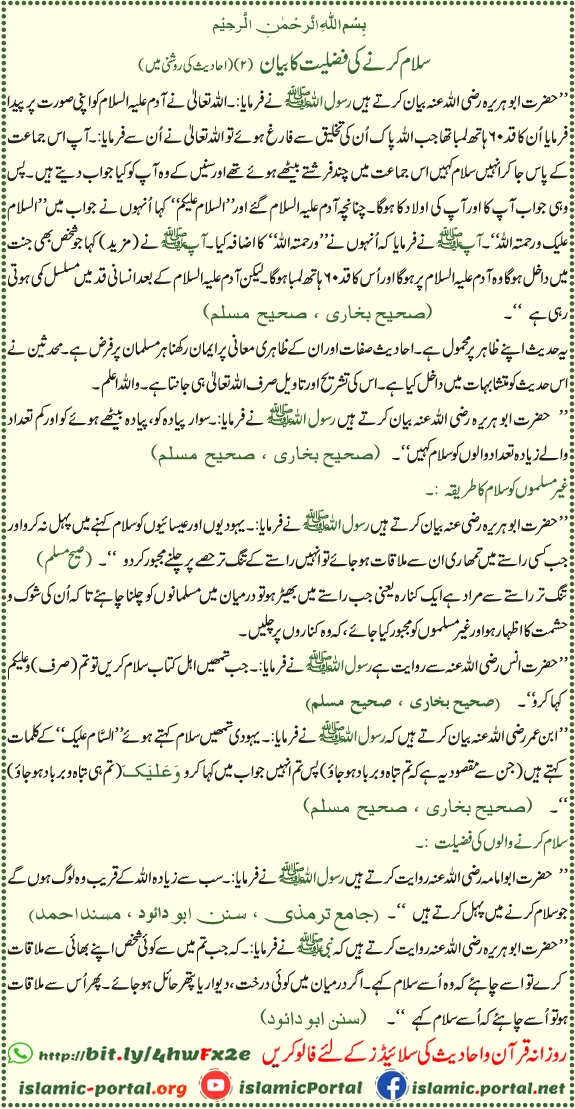 بِسْمِ اللهِ الرَّحْمٰنِ الرَّحِيْمِ
سلام کرنے کی فضلیت کا بیان (۲) (احادیث کی روشنی میں)
’’حضرت ابو ہریرہ رضی اللہ عنہ بیان کرتے ہیں رسول اللہ ﷺ نے فرمایا:۔ اللہ تعالیٰ نے آدم علیہ السلام کو اپنی صورت پر پیدا
فرمایا اُن کا قد ۶۰ ہاتھ لمبا تھا جب اللہ پاک اُن کی تخلیق سے فارغ ہوئے تو اللہ تعالیٰ نے اُن سے فرمایا:۔ آپ اس جماعت
کے پاس جا کر انہیں سلام کہیں اس جماعت میں چند فرشتے بیٹھے ہوئے تھے اور سنیں کے وہ آپ کو کیا جواب دیتے ہیں۔ پس
وہی جواب آپ کا اور آپ کی اولاد کا ہوگا۔ چنانچہ آدم علیہ السلام گئے اور ’’السلام علیکم‘‘ کہا اُنہوں نے جواب میں ’’السلام
علیک ورحمتہ اللہ‘‘۔ آپ ﷺ نے فرمایا کہ اُنہوں نے ’’ورحمتہ اللہ‘‘ کا اضافہ کیا۔ آپ ﷺ نے (مزید) کہا جو شخص بھی جنت
میں داخل ہوگا وہ آدم علیہ السلام پر ہوگا اور اُس کا قد ۶۰ ہاتھ لمبا ہوگا۔ لیکن آدم علیہ السلام کے بعد انسانی قد میں مسلسل کمی ہوتی
رہی ہے ‘‘۔ (صحیح بخاری ، صحیح مسلم)
یہ حدیث اپنے ظاہر پر محمول ہے۔ احادیث صفات اور ان کے ظاہری معانی پر ایمان رکھنا ہر مسلمان پر فرض ہے۔ محدثین نے
اس حدیث کو متشابہات میں داخل کیا ہے۔ اس کی تشریح اور تاویل صرف اللہ تعالیٰ ہی جانتا ہے۔ واللہ اعلم۔
’’ حضرت ابو ہریرہ رضی اللہ عنہ بیان کرتے ہیں رسول اللہ ﷺ نے فرمایا:۔ سوار پیادہ کو، پیادہ بیٹھے ہوئے کو اور کم تعداد
والے زیادہ تعداد والوں کو سلام کہیں‘‘۔ (صحیح بخاری ، صحیح مسلم)
غیر مسلموں کو سلام کا طریقہ :۔
’’حضرت ابو ہریرہ رضی عنہ بیان کرتے ہیں رسول اللہ ﷺ نے فرمایا:۔ یہودیوں اور عیسائیوں کو سلام کہنے میں پہل نہ کرو اور
جب کسی راستے میں تمھاری ان سے ملاقات ہو جائے تو انہیں راستے کے تنگ تر حصے پر چلنے مجبور کردو ‘‘۔ (صحیح مسلم)
تنگ تر راستے سے مراد ہے ایک کنارہ یعنی جب راستے میں بھیڑ ہو تو درمیان میں مسلمانوں کو چلنا چاہئے تاکہ اُن کی شوک و
حشمت کا اظہار ہو اور غیر مسلموں کو مجبور کیا جائے، کہ وہ کناروں پر چلیں۔
’’حضرت انس رضی اللہ عنہ سے روایت ہے رسول اللہ ﷺ نے فرمایا:۔ جب تمھیں اہل کتاب سلام کریں تو تم (صرف) وعلیکم
کہا کرو‘‘۔ (صحیح بخاری ، صحیح مسلم)
’’ابن عمر رضی اللہ عنہ بیان کرتے ہیں کہ رسول اللہ ﷺ نے فرمایا:۔ یہودی تمھیں سلام کہتے ہوئے ’’السَّام علیک‘‘ کے کلمات
کہتے ہیں (جن سے مقصود یہ ہے کہ تم تباہ و برباد ہو جاؤ) پس تم انہیں جواب میں کہا کرو وَعَلَیْکَ (تم ہی تباہ و برباد ہو جاؤ)
‘‘۔ (صحیح بخاری ، صحیح مسلم)
سلام کرنے والوں کی فضیلت :۔
’’ حضرت ابو امامہ رضی اللہ عنہ روایت کرتے ہیں رسول اللہ ﷺ نے فرمایا:۔ سب سے زیادہ اللہ کے قریب وہ لوگ ہوں گے
جو سلام کرنے میں پہل کرتے ہیں ‘‘۔ (جامع ترمذی ، سنن ابو دائود ، مسند احمد)
’’حضرت ابو ہریرہ رضی اللہ عنہ روایت کرتے ہیں کہ نبی ﷺ نے فرمایا:۔ کہ جب تم میں سے کوئی شخص اپنے بھائی سے ملاقات
کرے تو اسے چاہئے کہ وہ اُسے سلام کہے۔ اگر درمیان میں کوئی درخت، دیوار یا پتھر حائل ہو جائے۔ پھر اُس سے ملاقات
ہو تو اُسے چاہئے کہ اُسے سلام کہے ‘‘۔ (سنن ابو دائود)
روزانہ قرآن و احادیث کی سلائیڈز کے لئے فالو کریں http://bit.ly/4hwFx2e
islamic-portal.org islamicPortal islamic.portal.net